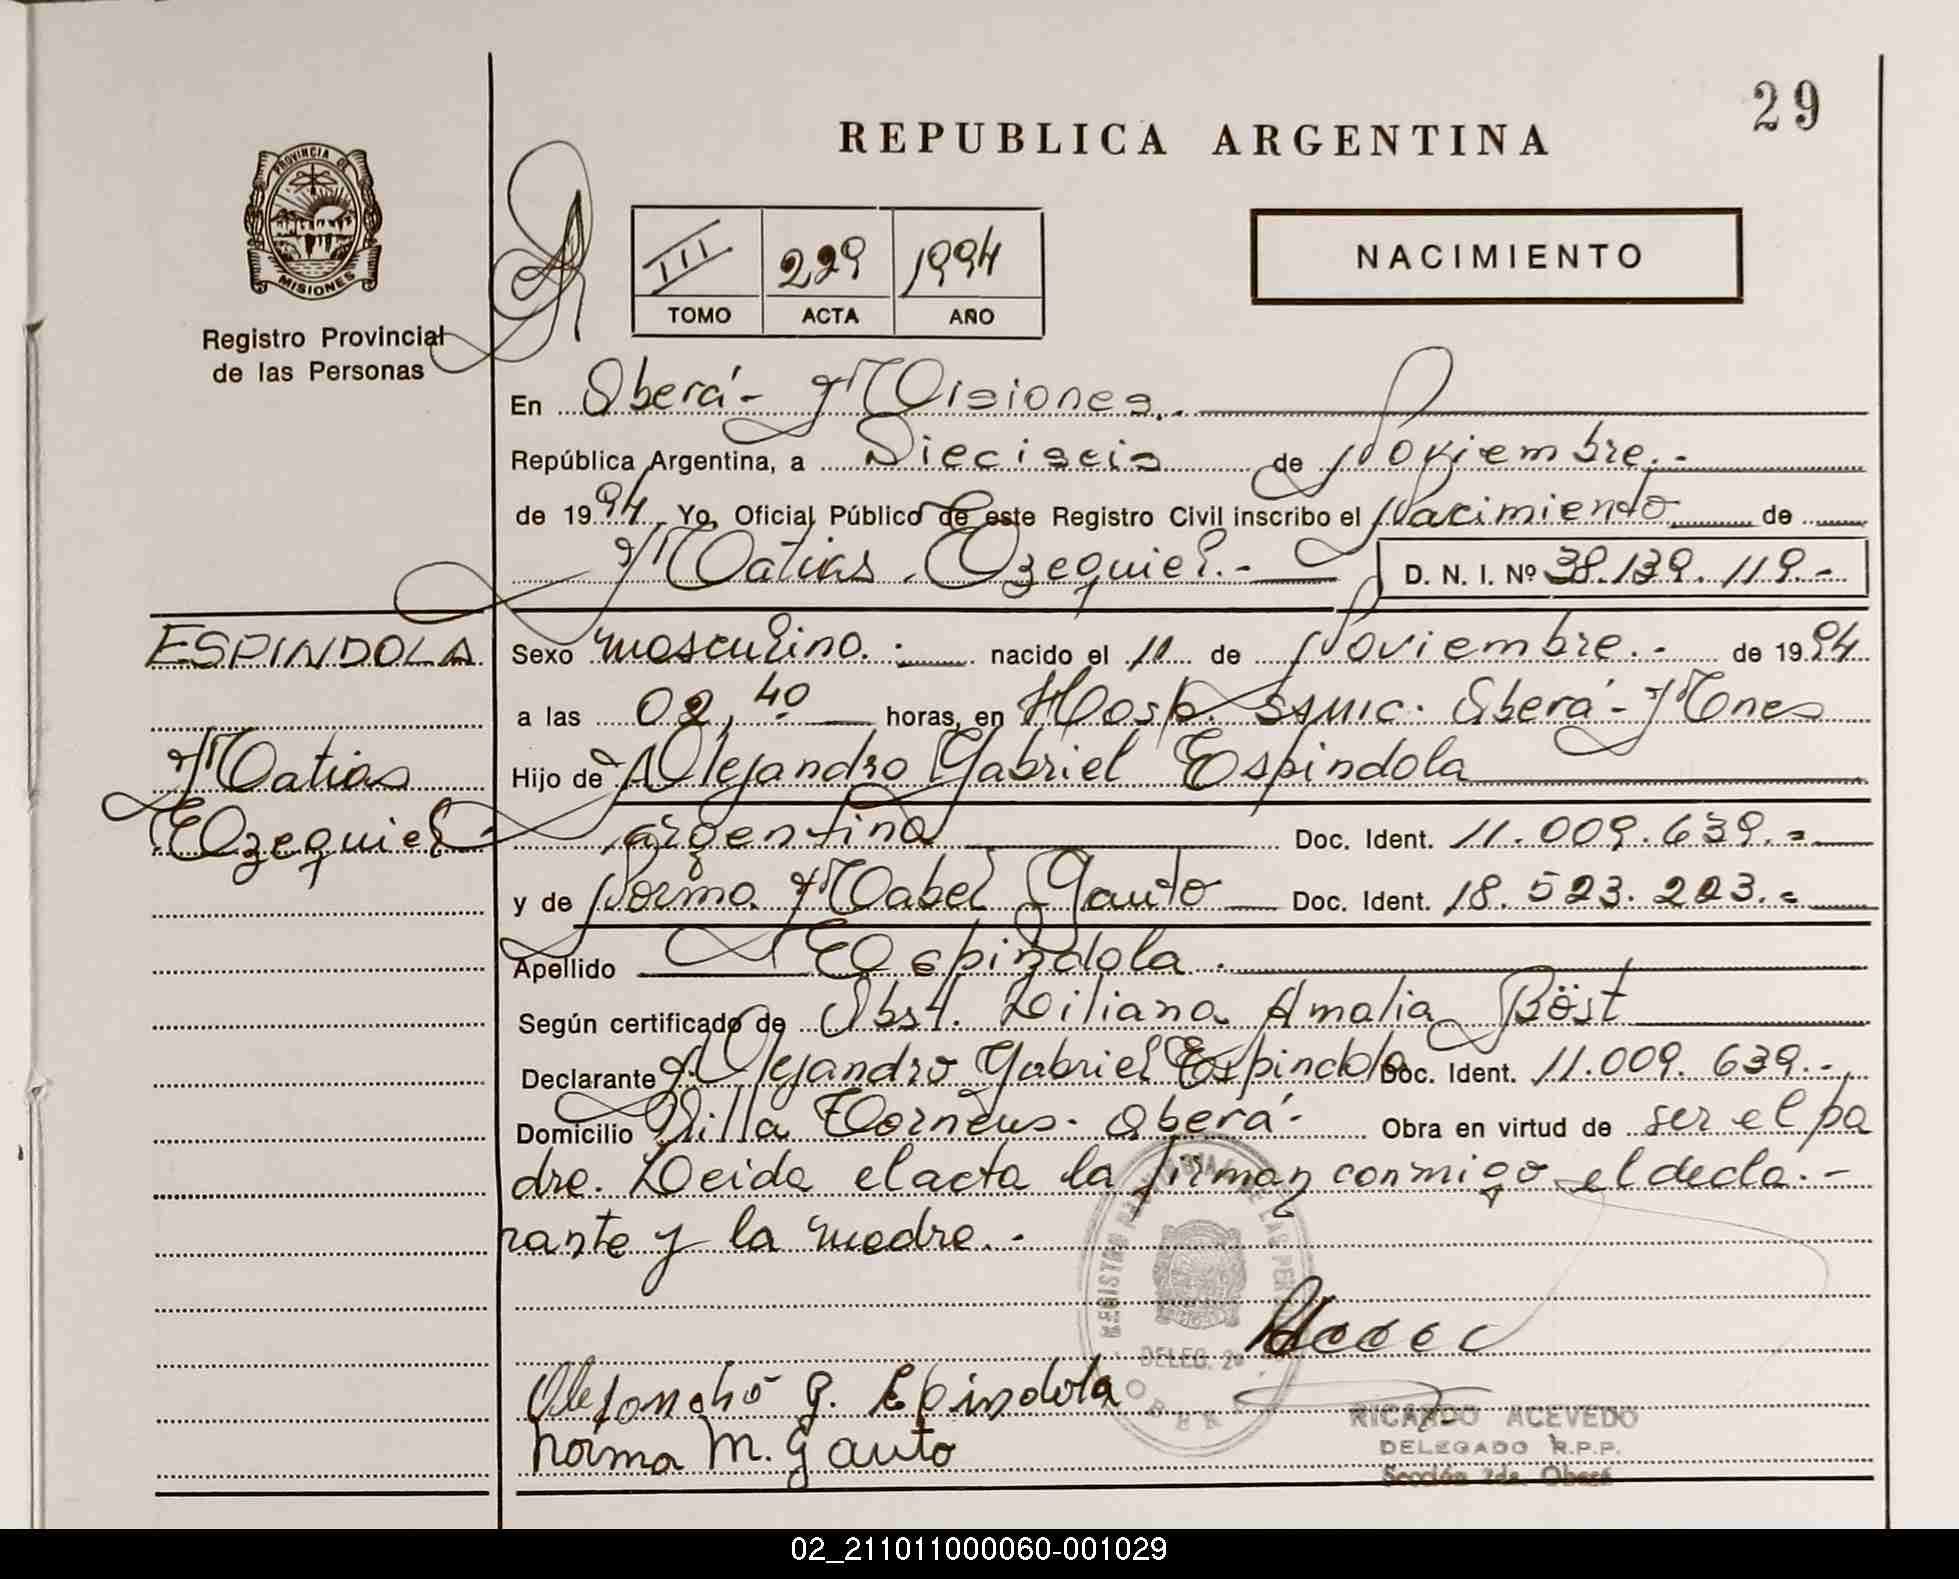 29
REPUBLICA ARGENTINA
PROVINCIA DE
MISIONES
Registro Provincial
de las Personas
III 229 1994
TOMO ACTA AÑO
NACIMIENTO
En Oberá - Misiones.
República Argentina, a Dieciseis de Noviembre.-
de 1994. Yo, Oficial Público de este Registro Civil inscribo el Nacimiento de
Matias Ezequiel.- D. N. I. Nº 38.139.119.-
ESPINDOLA
Matias
Ezequiel
Sexo masculino.- nacido el 10 de Noviembre.- de 1994
a las 02,40 horas, en Hosp. SAMIC. Oberá - Mnes
Hijo de Alejandro Gabriel Espindola
argentino Doc. Ident. 11.009.639.=
y de Norma Mabel Gauto Doc. Ident. 18.523.223.=
Apellido Espindola.
Según certificado de Obst. Liliana Amalia Böst
Declarante Alejandro Gabriel Espindola Doc. Ident. 11.009.639.-
Domicilio Villa Torneus. Oberá- Obra en virtud de ser el pa
dre. Leida el acta la firman conmigo el decla.-
rante y la madre.-
DELEG. 2ª
OBERA
Alejandro G. Epindola
Norma M. Gauto
RICARDO ACEVEDO
DELEGADO R.P.P.
Sección 2da. Oberá
02_211011000060-001029